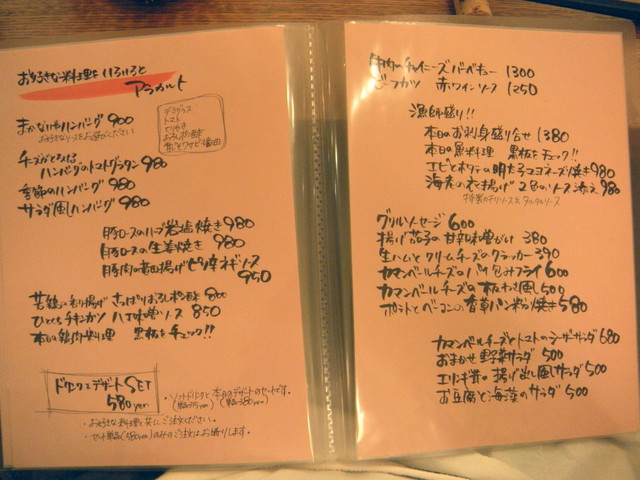 お好きな料理をいろいろと
アラカルト
まかないやハンバーグ 900
お好きなソースをお選びください
デミグラス
トマト
てりやき
おろしポン酢
チーズがとろける
ハンバーグのトマトグラタン 980
季節のハンバーグ 980
サラダ風ハンバーグ 980
豚ロースのハーブ岩塩焼き 980
豚ロースの生姜焼き 980
豚肉の竜田揚げピリ辛ネギソース
950
若鶏の彩り揚げ さっぱりおろしポン酢 800
ひとくちチキンカツ 八丁味噌ソース 850
本日の鶏肉料理 黒板をチェック!!
ドリンクとデザートSET
580yen
・ソフトドリンクと本日のデザートのセットです。
・お好きな料理と共にご注文ください。
・セット単品(580yen)のみのご注文はお断りします。
牛肉のチャイニーズバーベキュー 1300
ビーフカツ 赤ワインソース 1250
漁師盛り!!
本日のお刺身盛り合せ 1380
本日の魚料理 黒板をチェック!!
エビとホタテの明太子マヨネーズ焼き 980
海老の衣揚げ 2色のソース添え 980
特製チリソース&タルタルソース
グリルソーセージ 600
揚げ茄子の甘辛味噌がけ 380
生ハムとクリームチーズのクラッカー 390
カマンベールチーズのパイ包みフライ 600
カマンベールチーズの板わさ風 500
ポテトとベーコンの香草パン粉焼き 580
カマンベールチーズとトマトのシーザーサラダ 680
おまかせ野菜サラダ 500
エリンギ茸の揚げ出し風サラダ 500
お豆腐と海藻のサラダ 500